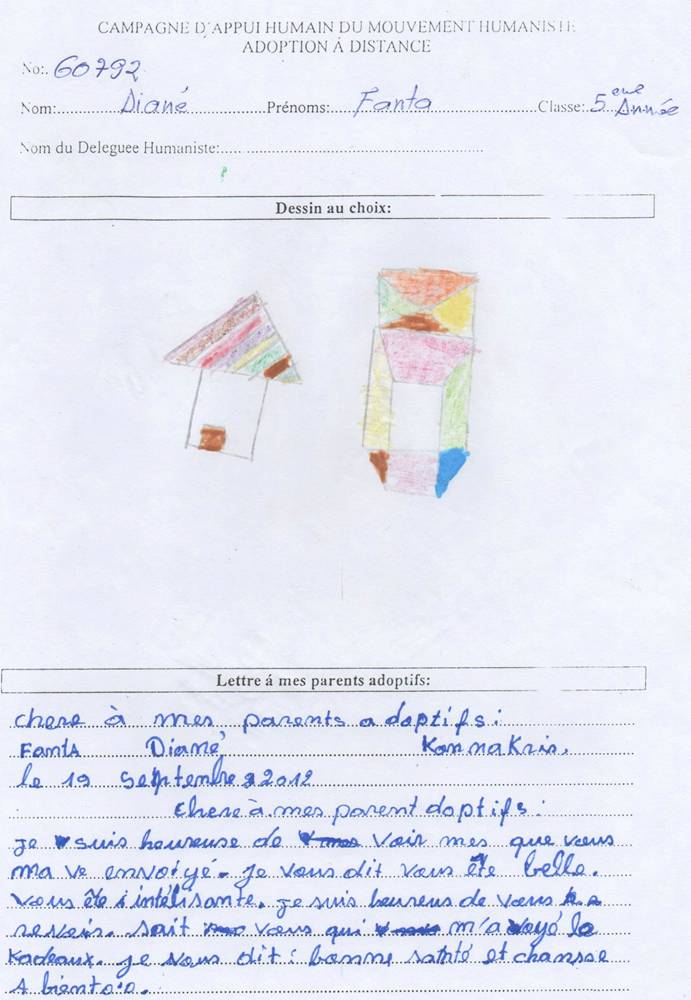 CAMPAGNE D'APPUI HUMAIN DU MOUVEMENT HUMANISTE
ADOPTION Á DISTANCE
No:. 60792
Nom: Diané Prénoms: Fanta Classe: 5 eme Année
Nom du Deleguee Humaniste:
Dessin au choix:
Lettre á mes parents adoptifs:
chere à mes parents adoptifs:
FantA Diané KonnaKris.
le 19 Septembre 2012
chere à mes parent doptifs:
je suis heureuse de voir mes que vous
ma ve envoiyé. je vous dit vous ête belle.
vous ête intélisante. je suis heureus de vous
revoir. sait vous qui m'a voyé le
Kadeaux. je vous dit: bonne santé et chansse
A biento.